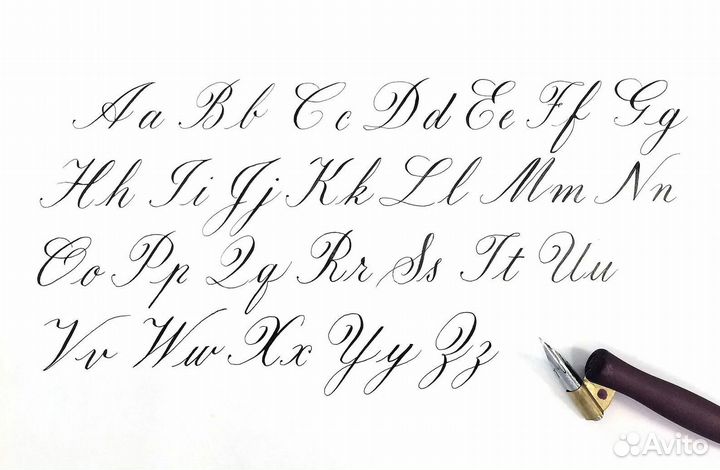 Aa Bb Cc Dd Ee Ff Gg
Hh Ii Jj Kk Ll Mm Nn
Oo Pp Qq Rr Ss Tt Uu
Vv Ww Xx Yy Zz
Avito